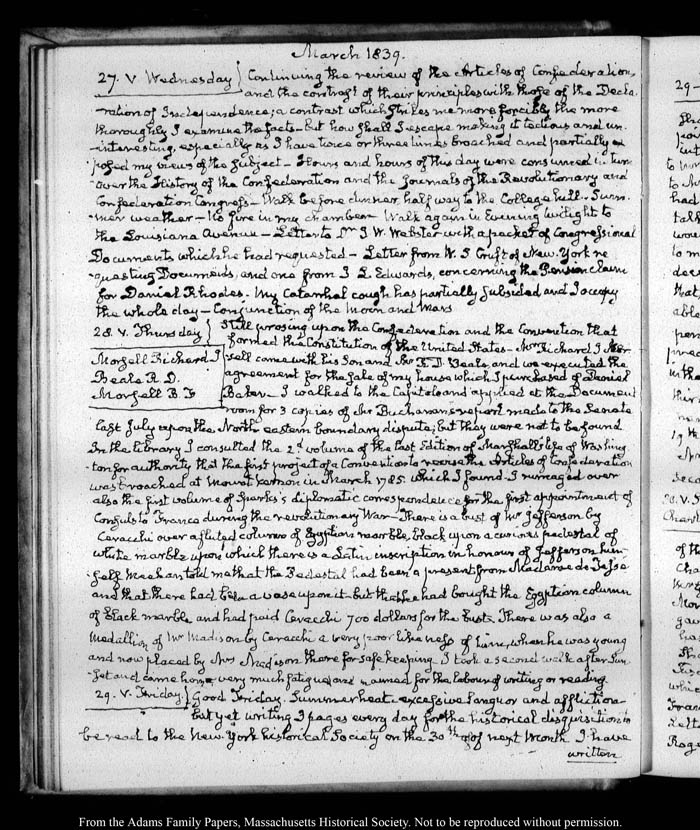 March 1839.
27. V. Wednesday} Continuing the review of the Articles of Confederation,
and the contrast of their principles with those of the Decla-
-ration of Independence; a contrast which strikes me more forcibly the more
thoroughly I examine the facts - but how shall I escape making it tedious and un-
-interesting, especially as I have twice or three times broached and partially ex
posed my views of the subject - Hours and hours of this day were consumed in turn
over the History of the Confederation and the Journals of the Revolutionary and
Confederation Congress - Walk before dinner half way to the College hill. Sum-
mer weather - No fire in my chamber. Walk again in Evening twilight to
the Louisiana Avenue - Letter to Mr J. W. Webster with a packet of Congressional
Documents which he had requested - Letter from W. S. of New-York re
questing Documents, and one from I. L. Edwards, concerning the Pension claim
for Daniel Rhodes. My Catarrhal cough has partially subsided and I occupy
the whole day - Conjunction of the Moon and Mars
28. V. Thursday} Still prosing upon the Confederation and the Convention that
formed the Constitution of the United States - Mr Richard I Mor
Morsell Richard I
sell came with his Son and Mr R. D. Beale, and we executed the
Beale R. D.
agreement for the sale of my house which I purchased of Daniel
Morsell B. F
Baker - I walked to the Capitol and applied at the Document
room for 3 copies of Mr Buchanan's report made to the Senate
last July upon the North-eastern boundary dispute; but they were not to be found
In the library I consulted the 2d volume of the last Edition of Marshall's life of Washing
-ton for authority that the first project of a Convention to revise the Articles of Confederation
was broached at Mount Vernon in March 1785. which I found - I rumaged over
also the first volume of Sparks's diplomatic correspondence for the first appointment of
Consuls to France during the revolutionary War - There is a bust of Mr Jefferson by
Ceracchi over a fluted column of Egyptian marble, black upon a curious pedestal of
white marble upon which there is a Latin inscription in honour of Jefferson him-
self Meehan told me that the Pedestal had been a present from Madame de Tesse
and that there had been a vase upon it - but that he had bought the Egyptian column
of black marble and had paid Ceracchi 700 dollars for the bust. There was also a
medallion of Mr Madison by Ceracchi a very poor likeness of him, when he was young
and now placed by Mrs Madison there for safe keeping. I took a second walk after Sun-
-set and came home very much fatigued and unnerved for the labour of writing or reading.
29. V. Friday} Good Friday. Summer heat - excessive languor and affliction -
but yet writing 3 pages every day for the historical disquisition to
be read to the New-York historical Society on the 30th of next Month. I have
written
From the Adams Family Papers, Massachusetts Historical Society. Not to be reproduced without permission.